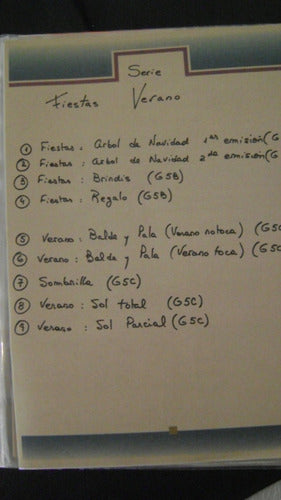 Serie
Fiestas Verano
① Fiestas: Arbol de Navidad 1ra emisión (G
② Fiestas: Arbol de Navidad 2da emisión (G
③ Fiestas: Brindis (G5B)
④ Fiestas: Regalo (G5B)
⑤ Verano: Balde y Pala (Verano no toca) (G5C
⑥ Verano: Balde y Pala (Verano toca) (G5C
⑦ Sombrilla (G5C)
⑧ Verano: Sol total (G5C)
⑨ Verano: Sol Parcial (G5C)